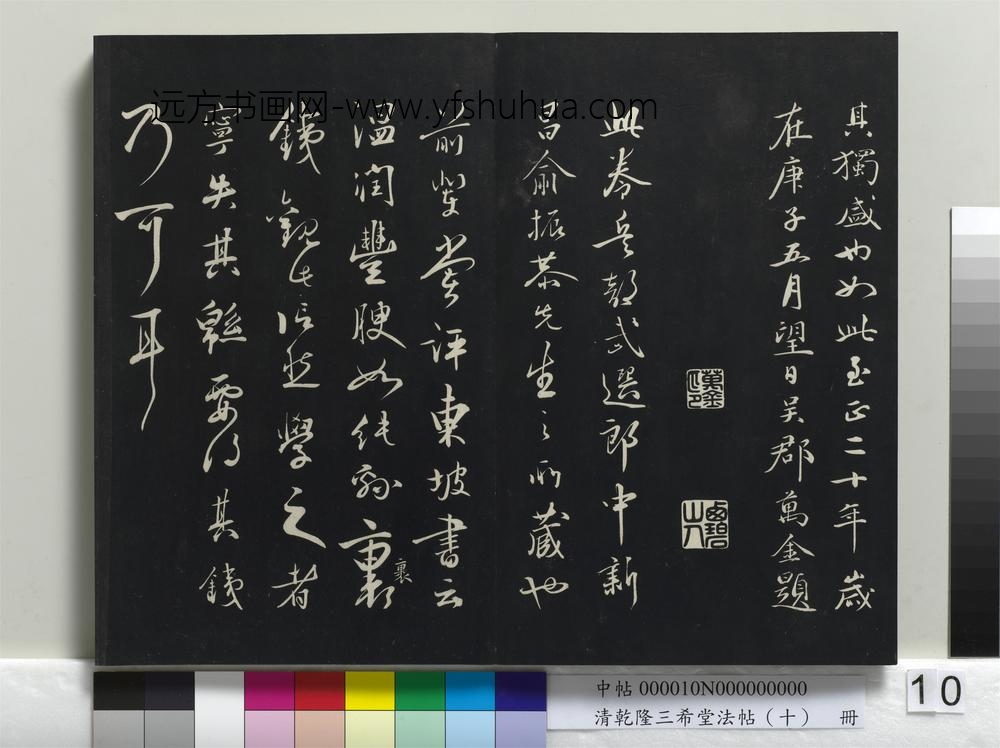 其獨盛也如此至正二十年歲
在庚子五月望日吳郡萬金題
萬金
碧山人
此卷兵部武選郎中新
昌俞振恭先生之所藏也
前輩嘗評東坡書云
溫潤豐腴如純綿裹
裹
鐵觀此信然學之者
寧失其綿要得其鐵
乃可耳
远方书画网-www.yfshuhua.com
中帖 000010N000000000
清乾隆三希堂法帖（十） 冊
10